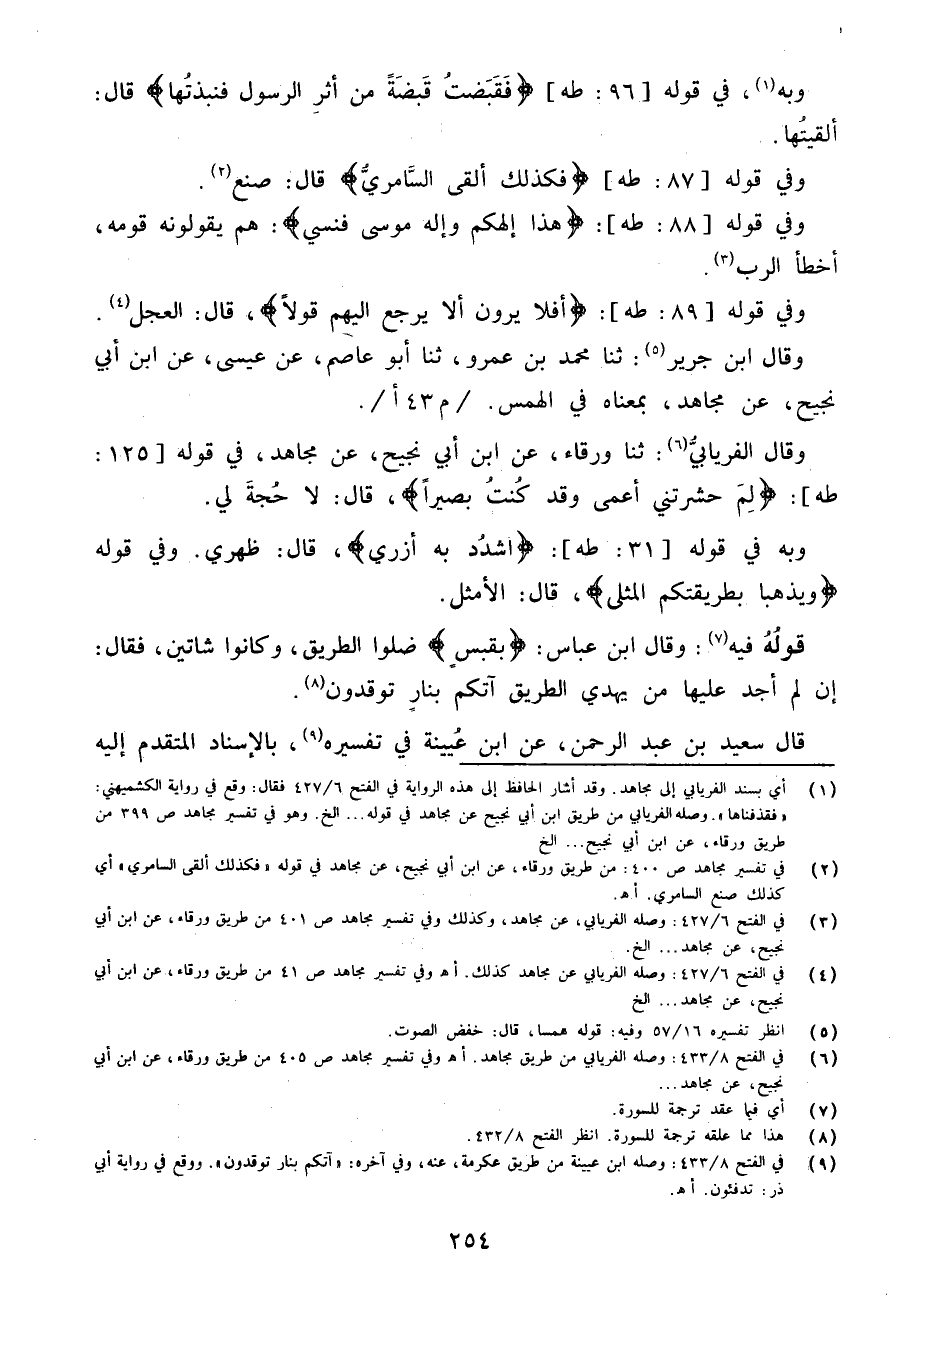 وبه(١)، في قوله [٩٦: طه] ﴿فَقَبَضتُ قَبضَةً من أثرِ الرسول فنبذتُها﴾ قال:
ألقيتُها.
وفي قوله [٨٧: طه] ﴿فكذلك ألقى السَّامريُّ﴾ قال: صنع(٢).
وفي قوله [٨٨: طه]: ﴿هذا إلهكم وإله موسى فنسي﴾: هم يقولونه قومه،
أخطأ الرب(٣).
وفي قوله [٨٩: طه]: ﴿أفلا يرون ألا يرجع اليهم قولاً﴾، قال: العجل(٤).
وقال ابن جرير(٥): ثنا محمد بن عمرو، ثنا أبو عاصم، عن عيسى، عن ابن أبي
نجيح، عن مجاهد، بمعناه في الهمس. /م ٤٣ أ/.
وقال الفريابيُّ(٦): ثنا ورقاء، عن ابن أبي نجيح، عن مجاهد، في قوله [١٢٥:
طه]: ﴿لِمَ حشرتني أعمى وقد كُنتُ بصيراً﴾، قال: لا حُجةَ لي.
وبه في قوله [٣١: طه]: ﴿اشدُد به أزري﴾، قال: ظهري. وفي قوله
﴿ويذهبا بطريقتكم المثلى﴾، قال: الأمثل.
قولُهُ فيه(٧): وقال ابن عباس: ﴿بقبسٍ﴾ ضلوا الطريق، وكانوا شاتين، فقال:
إن لم أجد عليها من يهدي الطريق آتكم بنارٍ توقدون(٨).
قال سعيد بن عبد الرحمن، عن ابن عُيينة في تفسيره(٩)، بالإسناد المتقدم إليه
(١) أي بسند الفريابي إلى مجاهد. وقد أشار الحافظ إلى هذه الرواية في الفتح ٤٢٧/٦ فقال: وقع في رواية الكشميهني:
«فقذفناها». وصله الفريابي من طريق ابن أبي نجيح عن مجاهد في قوله... الخ. وهو في تفسير مجاهد ص ٣٩٩ من
طريق ورقاء، عن ابن أبي نجيح... الخ
(٢) في تفسير مجاهد ص ٤٠٠: من طريق ورقاء، عن ابن أبي نجيح، عن مجاهد في قوله «فكذلك ألقى السامري» أي
كذلك صنع السامري. أ هـ.
(٣) في الفتح ٤٢٧/٦: وصله الفريابي، عن مجاهد، وكذلك وفي تفسير مجاهد ص ٤٠١ من طريق ورقاء، عن ابن أبي
نجيح، عن مجاهد... الخ.
(٤) في الفتح ٤٢٧/٦: وصله الفريابي عن مجاهد كذلك. أ هـ وفي تفسير مجاهد ص ٤١ من طريق ورقاء، عن ابن أبي
نجيح، عن مجاهد... الخ
(٥) انظر تفسيره ٥٧/١٦ وفيه: قوله همسا، قال: خفض الصوت.
(٦) في الفتح ٤٣٣/٨: وصله الفريابي من طريق مجاهد. أ هـ وفي تفسير مجاهد ص ٤٠٥ من طريق ورقاء، عن ابن أبي
نجيح، عن مجاهد...
(٧) أي فيما عقد ترجمة للسورة.
(٨) هذا مما علقه ترجمة للسورة. انظر الفتح ٤٣٢/٨.
(٩) في الفتح ٤٣٣/٨: وصله ابن عيينة من طريق عكرمة، عنه، وفي آخره: «آتكم بنار توقدون». ووقع في رواية أبي
ذر: تدفئون. أ هـ.
٢٥٤